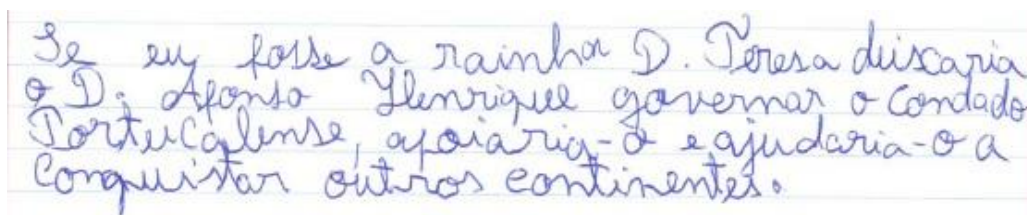 Se eu fosse a rainha D. Teresa deixaria
o D. Afonso Henrique governar o Condado
Portucalense, apoiaria-o e ajudaria-o a
conquistar outros continentes.